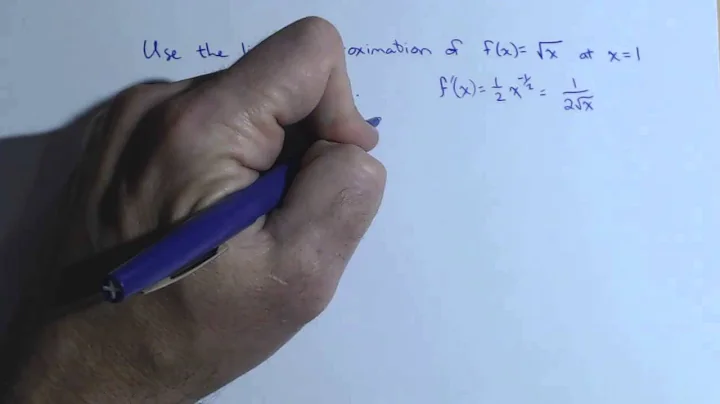 Use the oximation of f(x)=√x at x=1
f'(x)=1/2 x^-1/2 = 1/2√x